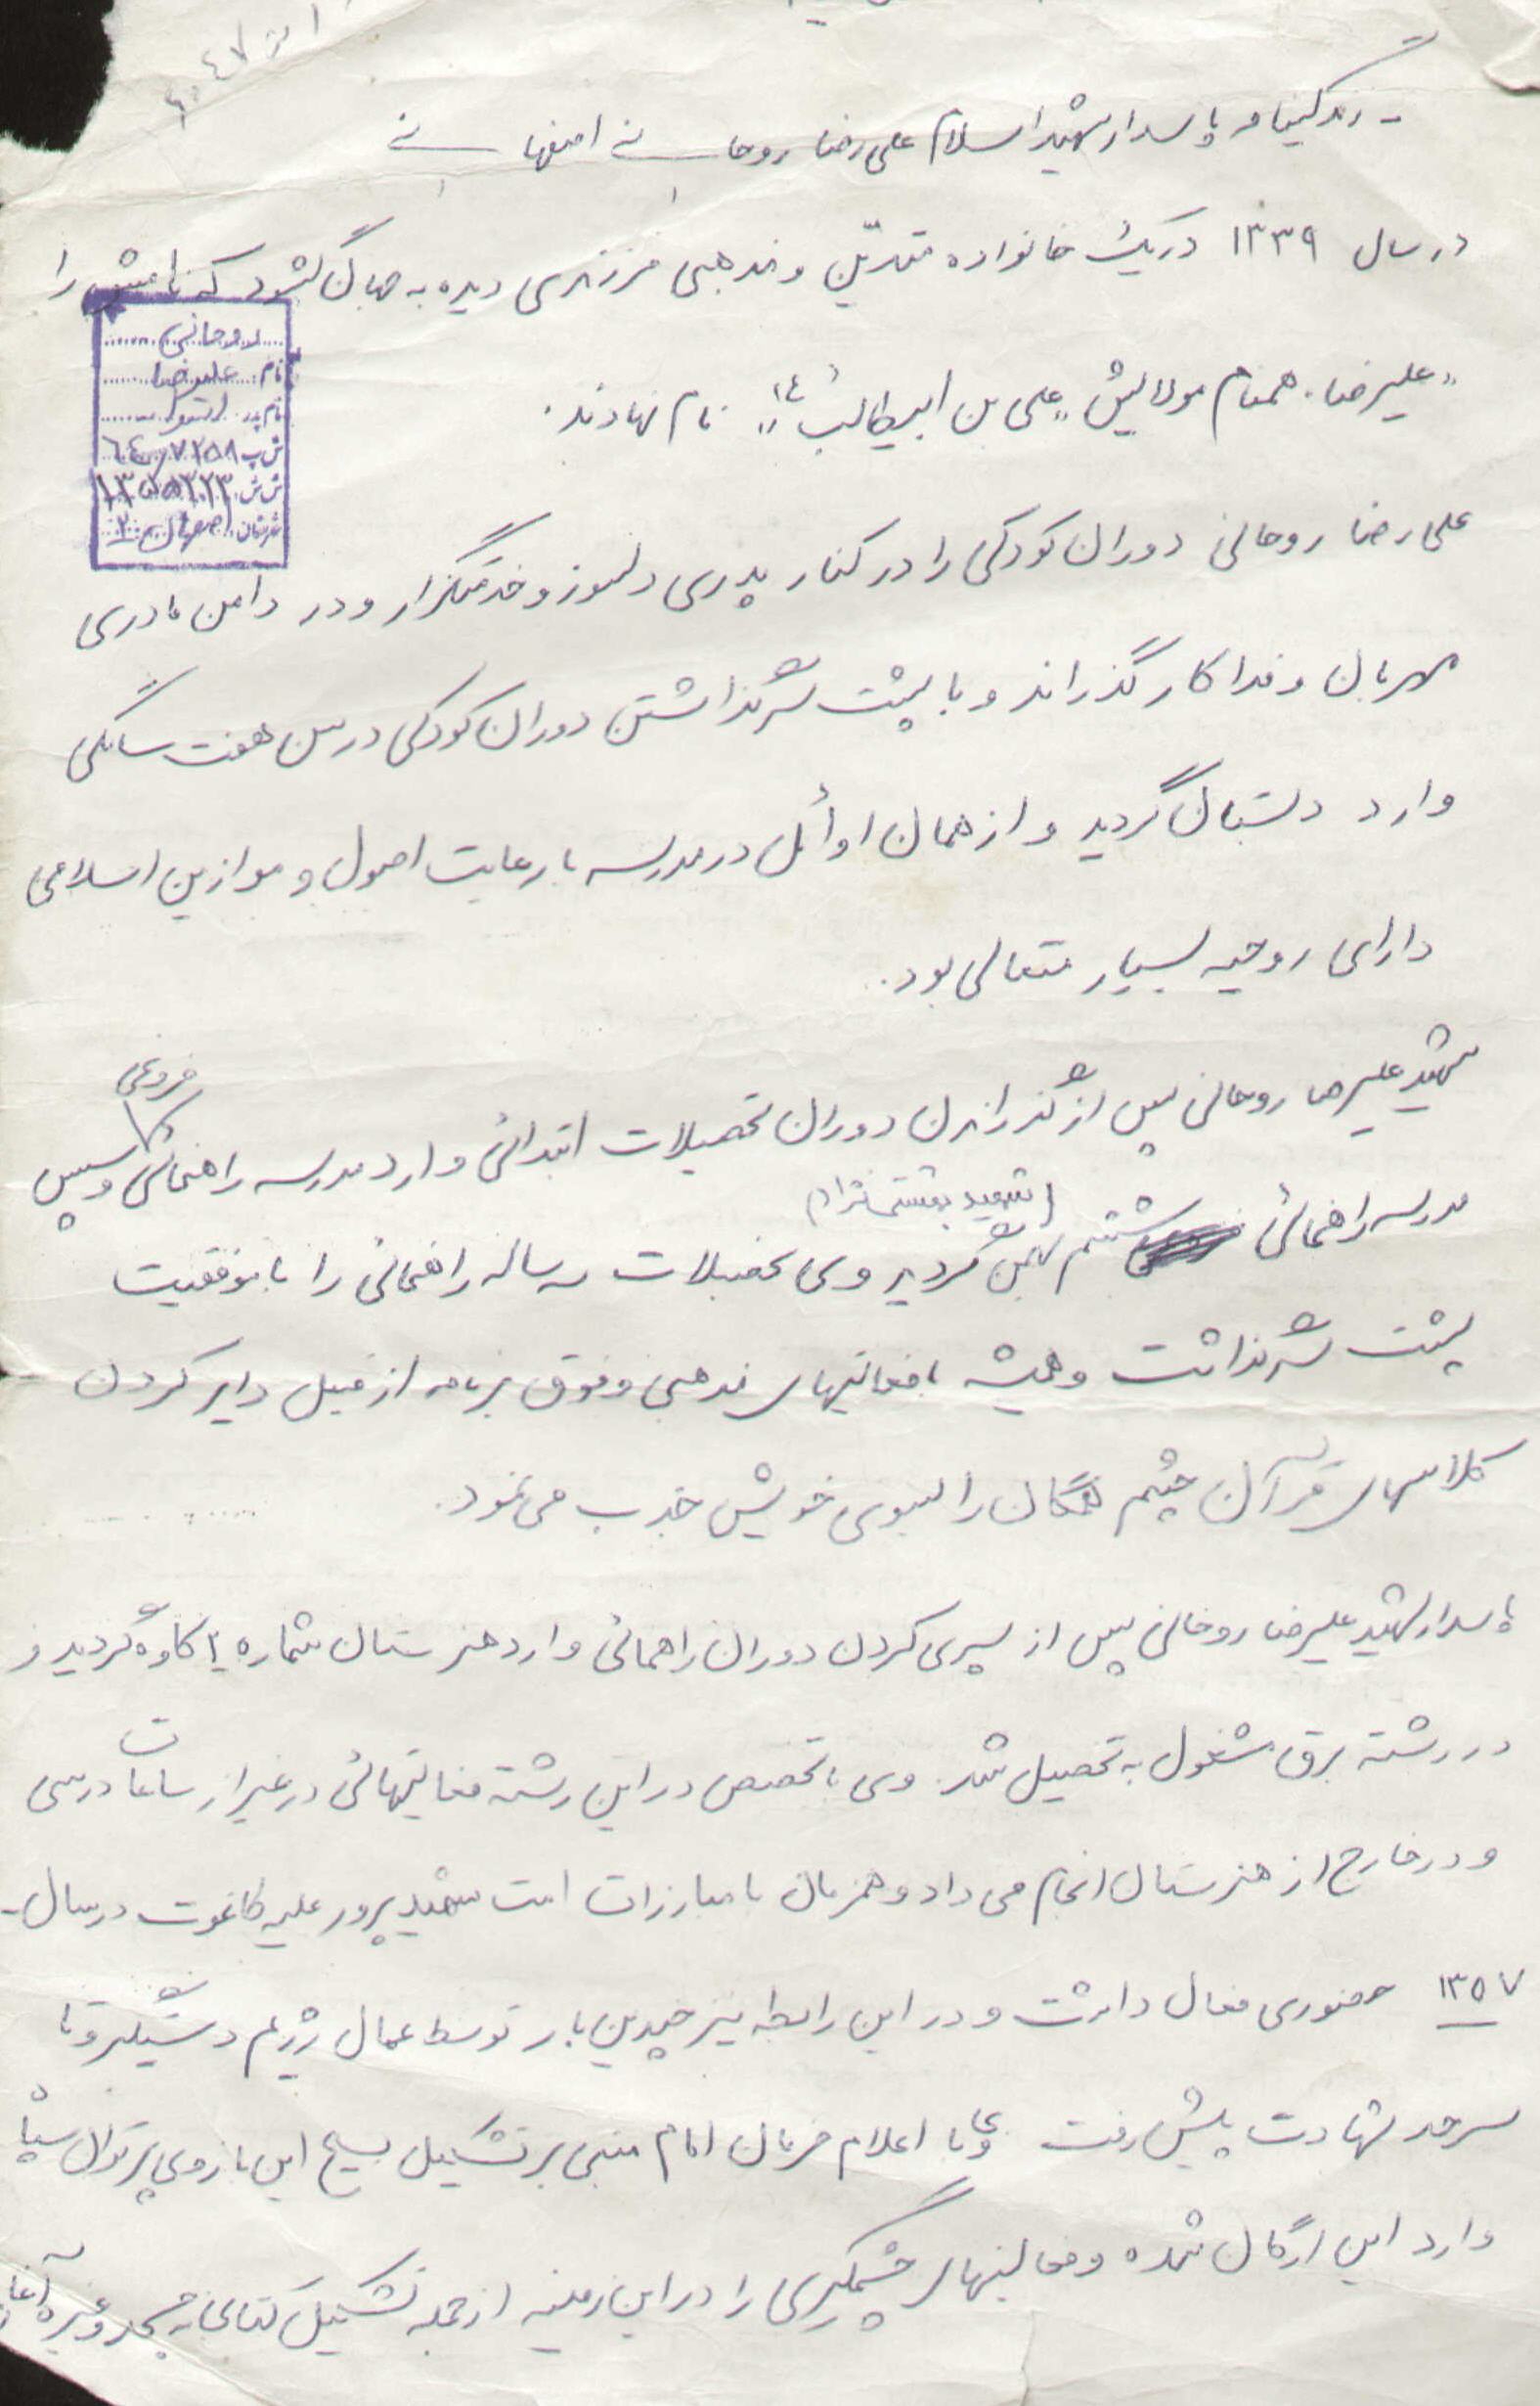 - زندگینامه پاسدار شهید اسلام علی رضا روحانی اصفهانی
در سال ۱۳۳۹ در یک خانواده متدیّن و مذهبی فرزندی دیده به جهان گشود که نامش را
"علیرضا، همنام مولایش "علی بن ابیطالب (ع)" نام نهادند.
روحانی
نام علیرضا
نام پدر
ش پ ۶۴۰۷۲۵۸
ش ش
شهرستان اصفهان
علی رضا روحانی دوران کودکی را در کنار پدری دلسوز و خدمتگزار و در دامن مادری
مهربان و فداکار گذراند و با پشت سر گذاشتن دوران کودکی در سن هفت سالگی
وارد دبستان گردید و از همان اوائل در مدرسه با رعایت اصول و موازین اسلامی
دارای روحیه بسیار متعالی بود.
شهید علیرضا روحانی پس از گذراندن دوران تحصیلات ابتدائی وارد مدرسه راهنمائی فروغی و سپس
مدرسه راهنمائی ششم بهمن (شهید بهشتی نژاد) گردید وی تحصیلات سه ساله راهنمائی را با موفقیت
پشت سر گذاشت و همیشه با فعالیتهای مذهبی و فوق برنامه از قبیل دایر کردن
کلاسهای قرآن چشم همگان را بسوی خویش جذب می نمود.
پاسدار شهید علیرضا روحانی پس از سپری کردن دوران راهنمائی وارد هنرستان شماره ۲ کاوه گردید و
در رشته برق مشغول به تحصیل شد. وی با تخصص در این رشته فعالیتهائی در غیر از ساعات درسی
و در خارج از هنرستان انجام می داد و همزمان با مبارزات امت شهید پرور علیه طاغوت در سال -
۱۳۵۷ حضوری فعال داشت و در این رابطه نیز چندین بار توسط عمال رژیم دستگیر و تا
سرحد شهادت پیش رفت وی با اعلام فرمان امام مبنی بر تشکیل بسیج این بازوی پرتوان سپاه
وارد این ارگان شده و فعالیتهای چشمگیری را در این زمینه از جمله تشکیل کتابخانه مسجد و غیره آغاز